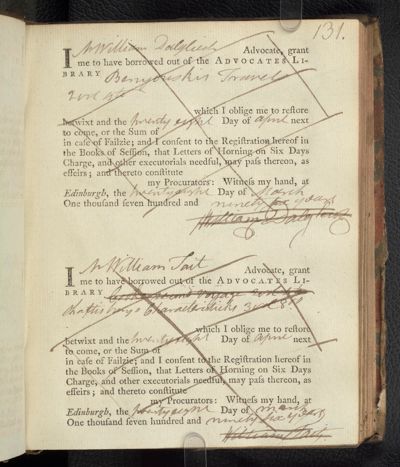 131.
I Mr William Dalgliesh Advocate, grant
me to have borrowed out of the ADVOCATES LI-
BRARY Benyouskis Travels
2 vol 4to
which I oblige me to reſtore
betwixt and the twenty eight Day of April next
to come, or the Sum of
in caſe of Failzie; and I conſent to the Regiſtration hereof in
the Books of Seſſion, that Letters of Horning on Six Days
Charge, and other executorials needful, may paſs thereon, as
effeirs; and thereto conſtitute
my Procurators: Witneſs my hand, at
Edinburgh, the twenty eight Day of March
One thouſand ſeven hundred and ninety six years
William Dalgliesh
I Mr William Tait Advocate, grant
me to have borrowed out of the ADVOCATES LI-
BRARY
Shaftesburys Characteristicks 3 vol 8vo
which I oblige me to reſtore
betwixt and the twenty eight Day of April next
to come, or the Sum of
in caſe of Failzie; and I conſent to the Regiſtration hereof in
the Books of Seſſion, that Letters of Horning on Six Days
Charge, and other executorials needful, may paſs thereon, as
effeirs; and thereto conſtitute
my Procurators: Witneſs my hand, at
Edinburgh, the twenty eight Day of March
One thouſand ſeven hundred and ninety six years
William Tait